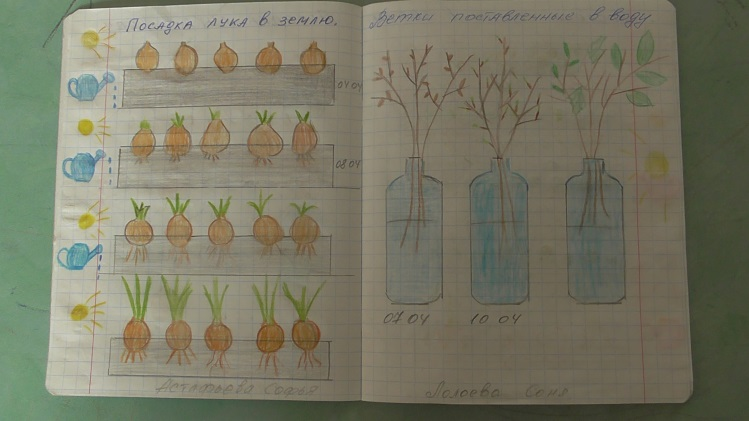 Посадка лука в землю.
04 04
08 04
Астафьева Софья
Ветки поставленные в воду
07 04
10 04
Лолаева Соня